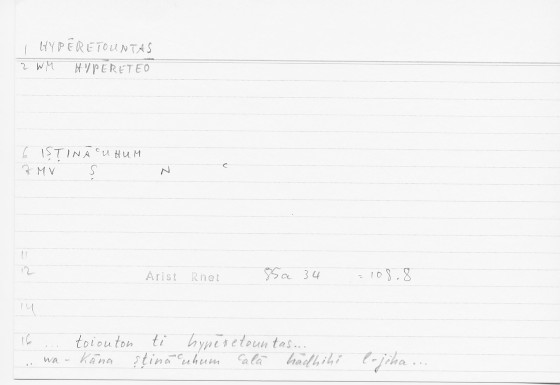 1 HYPĒRETOUNTAS
2 WM HYPĒRETEO
6 IṢṬINĀʿUHUM
7 MV Ṣ N ʿ
11
12 Arist Rhet 85a 34 = 108.8
14
16 ... toiouton ti hypēretountas...
.. wa-kāna ṣṭināʿuhum ʿalā hādhihī l-jiha...